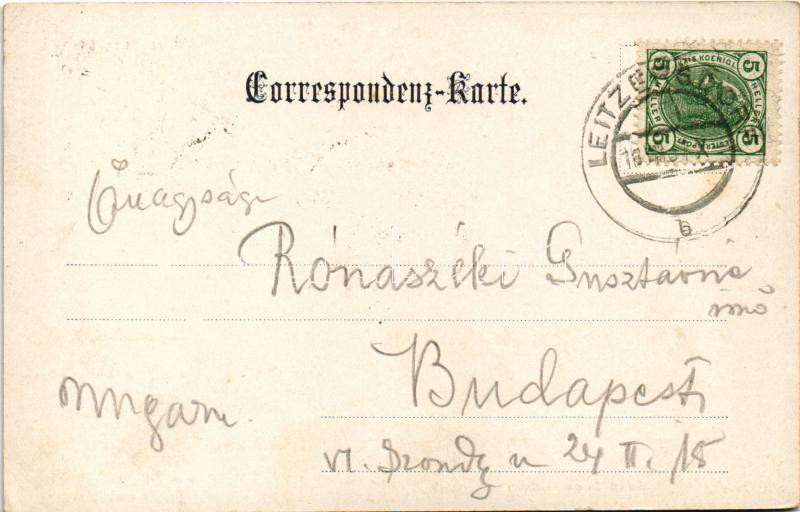 Correspondenz-Karte.
5 5
HELLER HELLER
5 5
LEITZ
b
Őnagysága
Rónaszéki Gusztávné
Budapest
Ungarn.
VI. Szondy u 24 II. /18